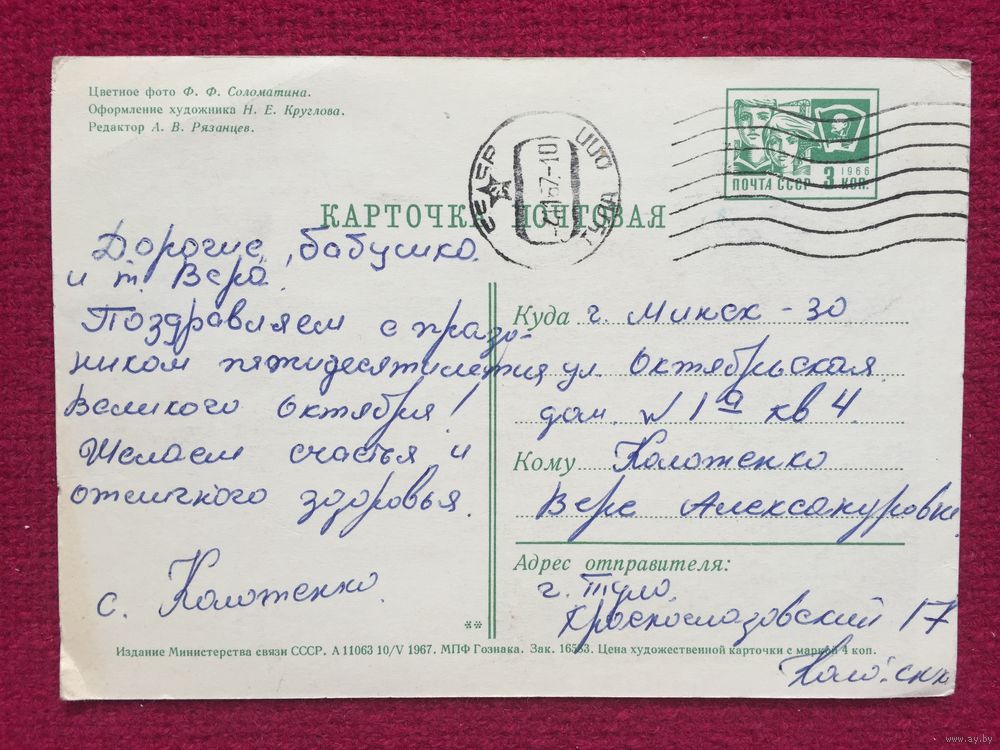 Цветное фото Ф. Ф. Соломатина.
Оформление художника Н. Е. Круглова.
Редактор А. В. Рязанцев.
СССР
ТУЛА
67.-10
1966
ПОЧТА СССР 3 КОП.
КАРТОЧКА ПОЧТОВАЯ
Дорогие, бабушка
и т. Вера.
Поздравляем с празд-
ником пятидесятилетия
Великого Октября!
Желаем счастья и
отличного здоровья.
с. Колотенко
Куда г. Минск - 30
ул. Октябрьская
дом. N 1а кв 4.
Кому Колотенко
Вере Александровне.
Адрес отправителя:
г. Тула.
17
**
Издание Министерства связи СССР. А 11063 10/V 1967. МПФ Гознака. Зак. 16533. Цена художественной карточки с маркой 4 коп.
www.ay.by